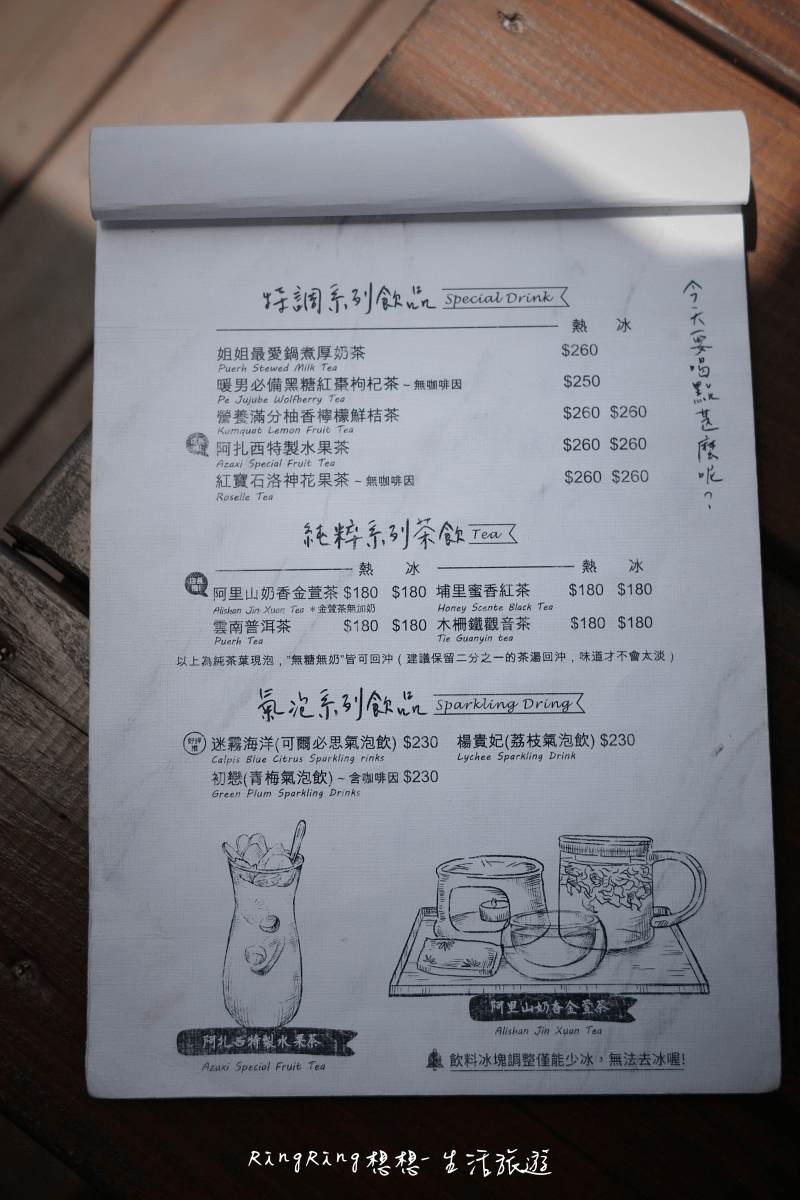 特調系列飲品 Special Drink
熱 冰
姐姐最愛鍋煮厚奶茶 $260
Puerh Stewed Milk Tea
暖男必備黑糖紅棗枸杞茶~無咖啡因 $250
Pe Jujube Wolfberry Tea
營養滿分柚香檸檬鮮桔茶 $260 $260
Kumquat Lemon Fruit Tea
店長推! 阿扎西特製水果茶 $260 $260
Azaxi Special Fruit Tea
紅寶石洛神花果茶 ~ 無咖啡因 $260 $260
Roselle Tea
今天要喝點甚麼呢?
純粹系列茶飲 Tea
熱 冰 熱 冰
店長推! 阿里山奶香金萱茶 $180 $180 埔里蜜香紅茶 $180 $180
Alishan Jin Xuan Tea *金萱茶無加奶 Honey Scente Black Tea
雲南普洱茶 $180 $180 木柵鐵觀音茶 $180 $180
Puerh Tea Tie Guanyin tea
以上為純茶葉現泡，"無糖無奶"皆可回沖（建議保留二分之一的茶湯回沖，味道才不會太淡）
氣泡系列飲品 Sparkling Dring
好評推 迷霧海洋(可爾必思氣泡飲) $230 楊貴妃(荔枝氣泡飲) $230
Calpis Blue Citrus Sparkling rinks Lychee Sparkling Drink
初戀(青梅氣泡飲) ~ 含咖啡因 $230
Green Plum Sparkling Drinks
阿里山奶香金萱茶
Alishan Jin Xuan Tea
阿扎西特製水果茶
Azaxi Special Fruit Tea
飲料冰塊調整僅能少冰，無法去冰喔!
RingRing想想-生活旅遊